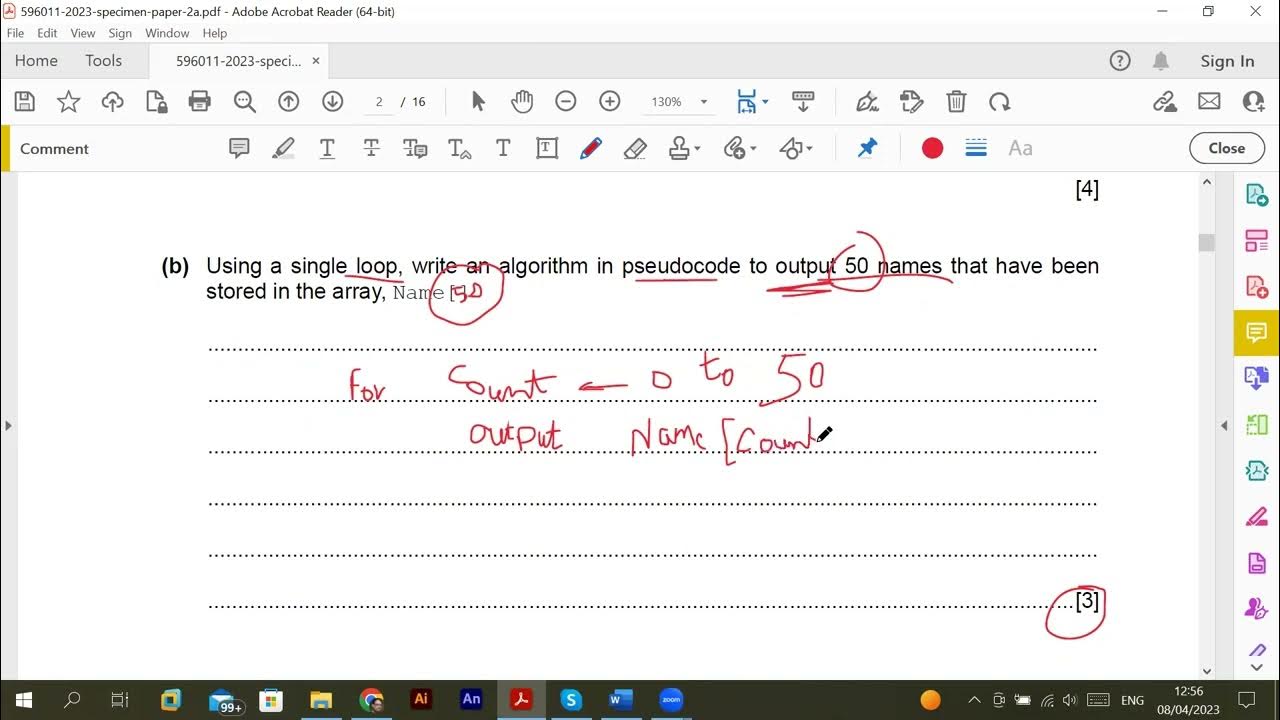 596011-2023-specimen-paper-2a.pdf - Adobe Acrobat Reader (64-bit)
File Edit View Sign Window Help
Home Tools 596011-2023-speci... × Sign In
2 / 16 130%
Comment Aa Close
[4]
(b) Using a single loop, write an algorithm in pseudocode to output 50 names that have been
stored in the array, Name[50
for Count ← 0 to 50
output Name [Count
[3]
99+ Ai An S W zoom ENG 12:56
08/04/2023